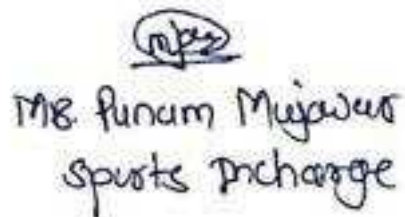 Ms. Punam Mujawar
Sports Incharge